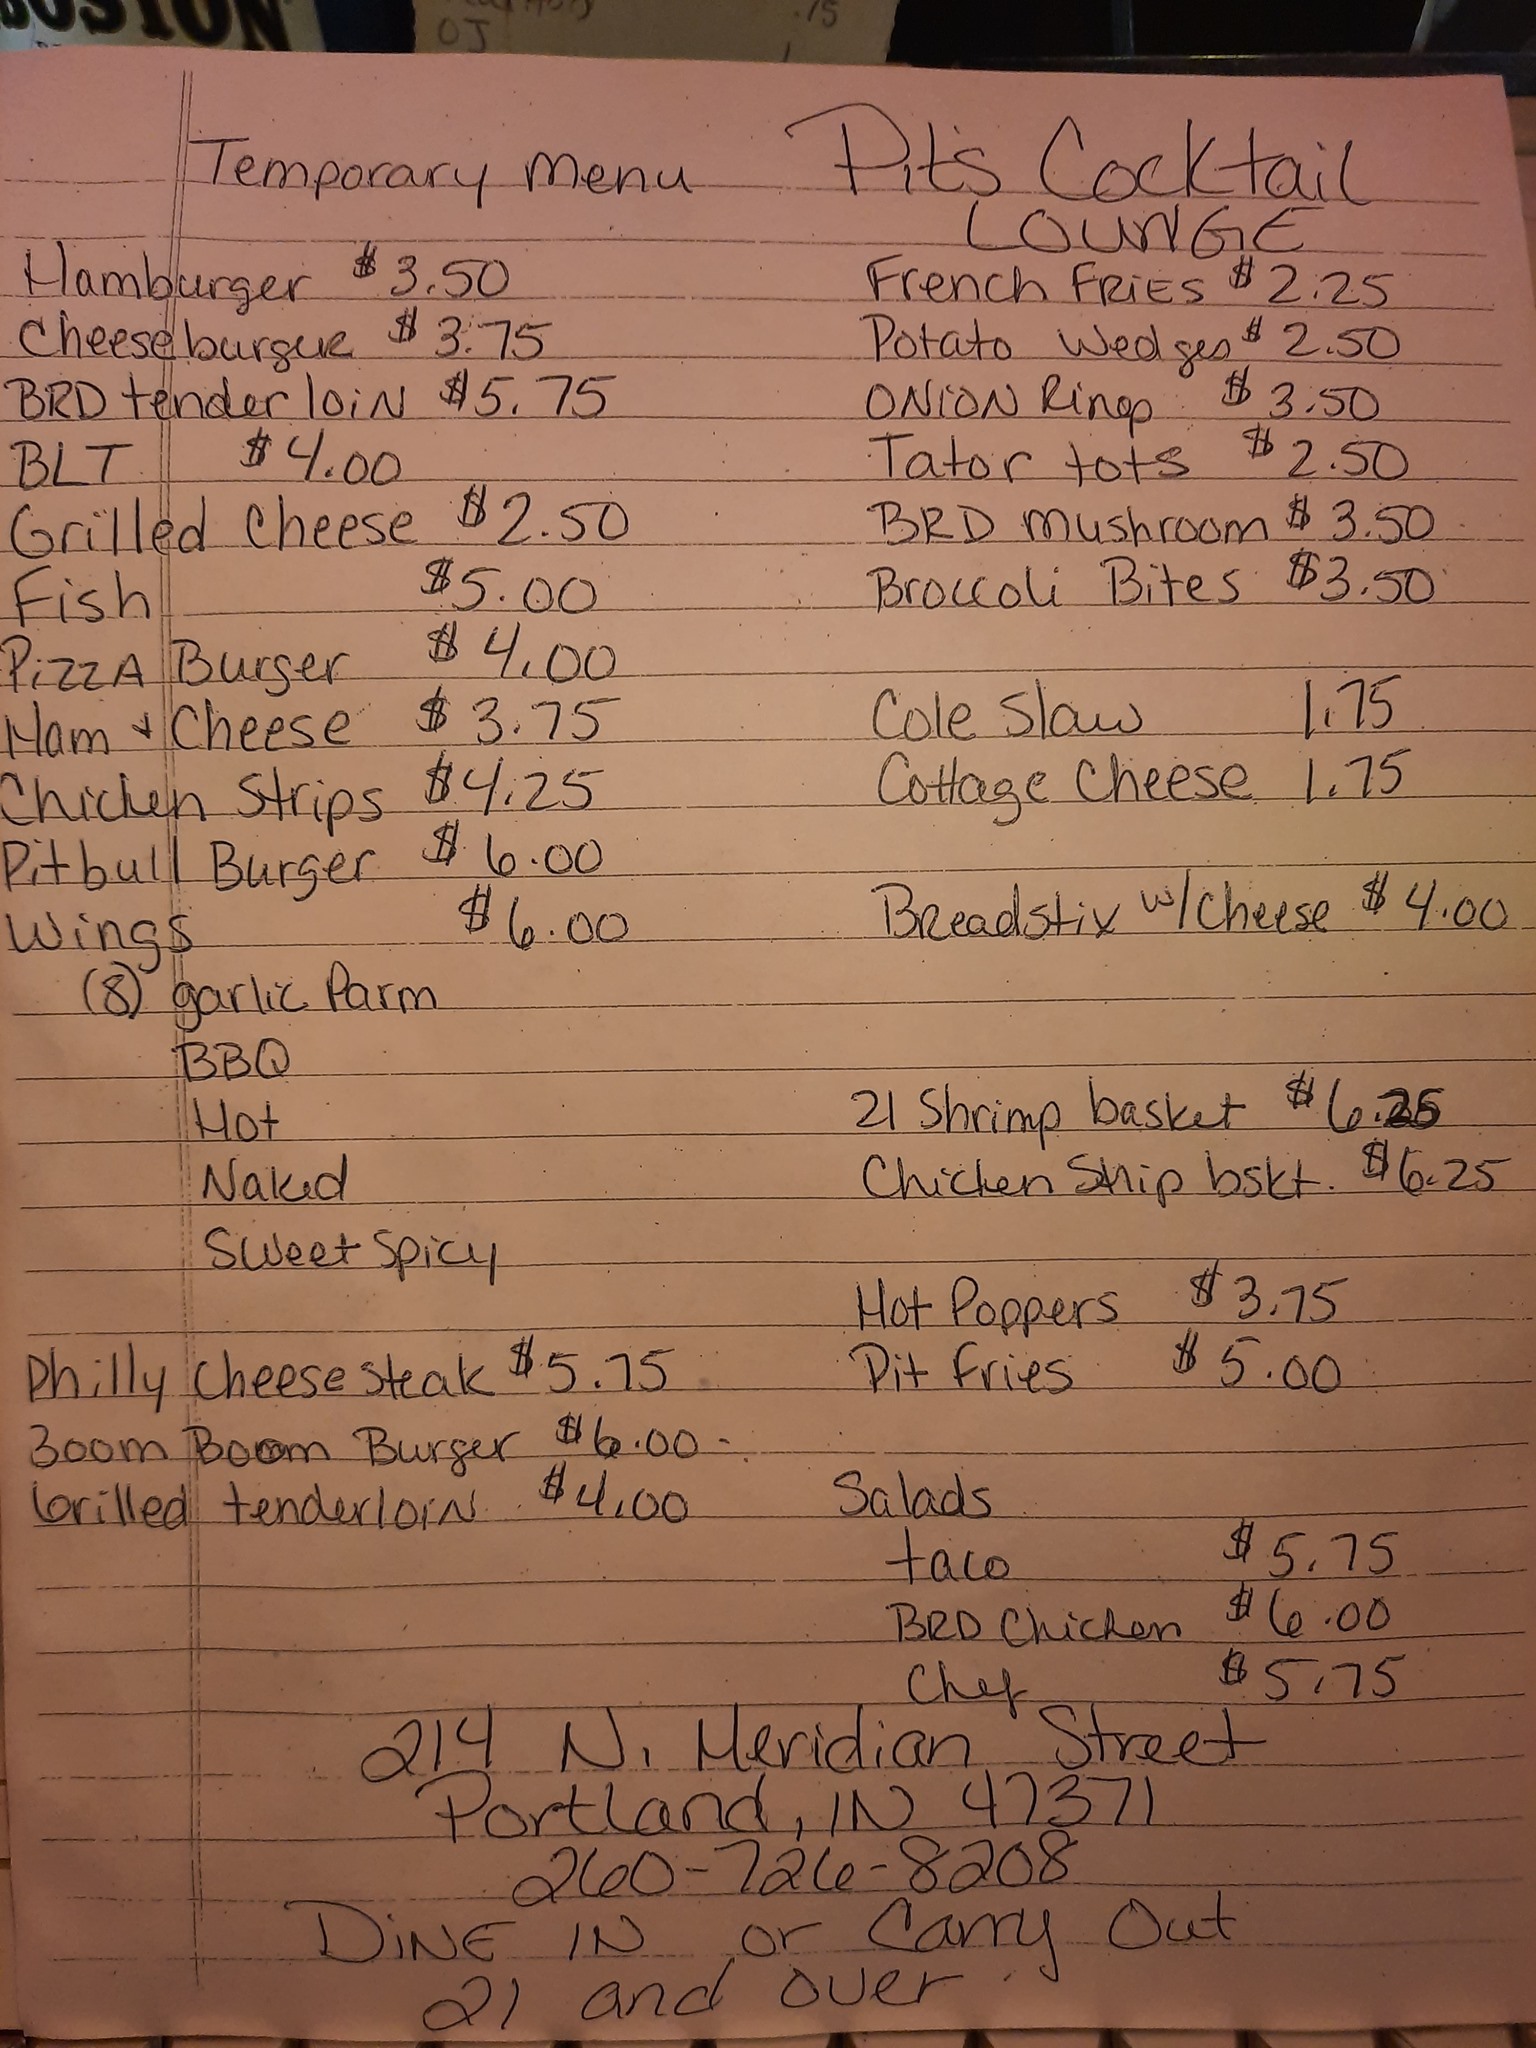 BOSTON
OJ
.75
Temporary Menu
Pit's Cocktail
LOUNGE
Hamburger $3.50
Cheeseburger $3.75
BRD tenderloin $5.75
BLT $4.00
Grilled Cheese $2.50
Fish $5.00
Pizza Burger $4.00
Ham + Cheese $3.75
Chicken Strips $4.25
Pitbull Burger $6.00
Wings $6.00
(8) garlic Parm
BBQ
Hot
Naked
Sweet Spicy
Philly Cheese steak $5.75
Boom Boom Burger $6.00
Grilled tenderloin $4.00
French FRIES $2.25
Potato Wedges $2.50
ONION Rings $3.50
Tator tots $2.50
BRD Mushroom $3.50
Broccoli Bites $3.50
Cole Slaw 1.75
Cottage Cheese 1.75
Breadstix w/Cheese $4.00
21 Shrimp basket $6.25
Chicken Strip bskt. $6.25
Hot Poppers $3.75
Pit Fries $5.00
Salads
taco $5.75
BRD Chicken $6.00
Chef $5.75
214 N. Meridian Street
Portland, IN 47371
260-726-8208
DINE IN or Carry Out
21 and over